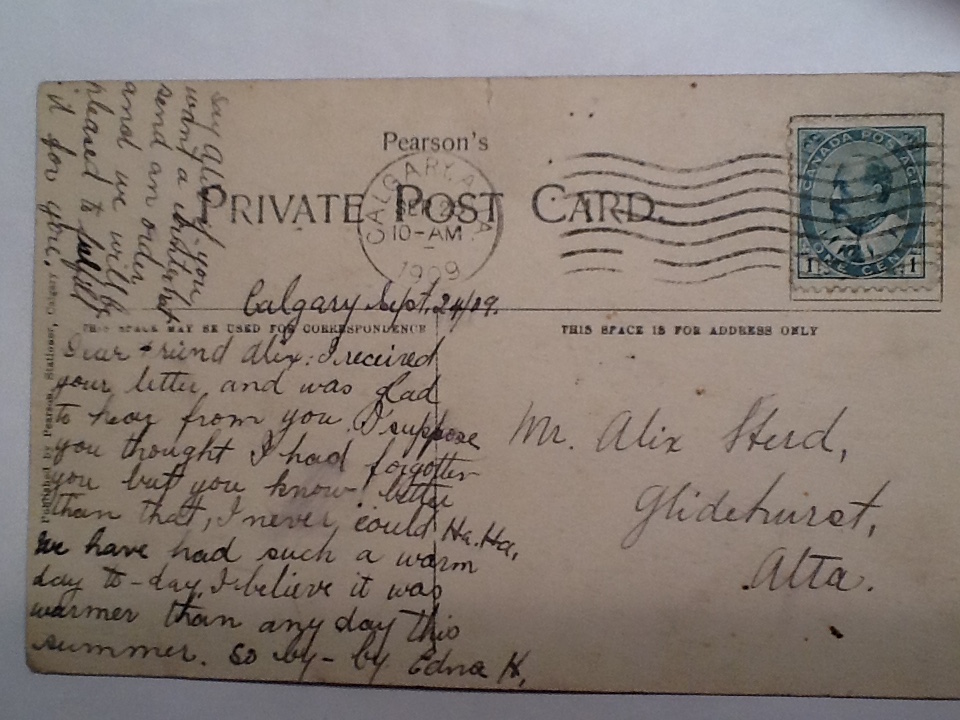 Pearson's
PRIVATE POST CARD.
CALGARY, ALTA.
10-AM
1909
CANADA POSTAGE
ONE CENT
1 1
Say Alix if you
want a winter hat
send an order
and we will be
pleased to
it for you.
Calgary Sept. 24/09.
THIS SPACE MAY BE USED FOR CORRESPONDENCE
THIS SPACE IS FOR ADDRESS ONLY
Dear Friend Alix: I received
your letter, and was glad
to hear from you. I suppose
you thought I had forgotten
you but you know better
than that, I never could Ha. Ha,
We have had such a warm
day to-day. I believe it was
warmer than any day this
summer. so by-by Edna H,
Mr. Alix Sterd,
Glidehurst,
Alta.
Published by Pearson, Stationer, Calgary